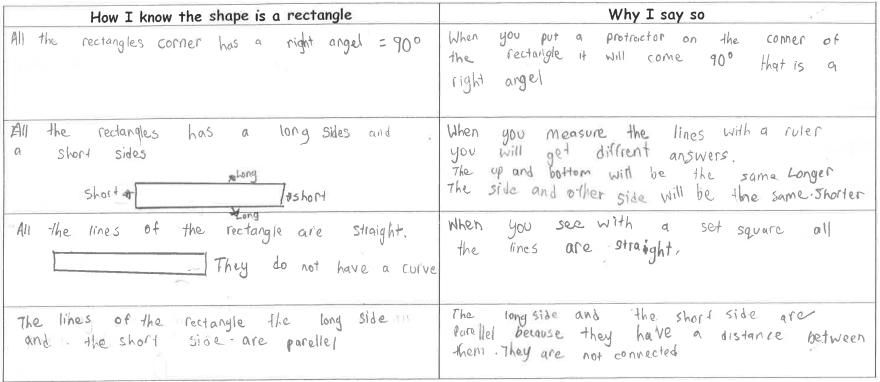 How I know the shape is a rectangle
Why I say so
All the rectangles corner has a right angel = 90°
When you put a protractor on the corner of
the rectangle it will come 90° that is a
right angel
All the rectangles has a long sides and
a short sides
Long
short
short
Long
When you measure the lines with a ruler
you will get diffrent answers.
The up and bottom will be the same. Longer
The side and other side will be the same. Shorter
All the lines of the rectangle are straight.
They do not have a curve
When you see with a set square all
the lines are straight.
The lines of the rectangle the long side
and the short side are parellel
The long side and the short side are
Parellel because they have a distance between
them. They are not connected